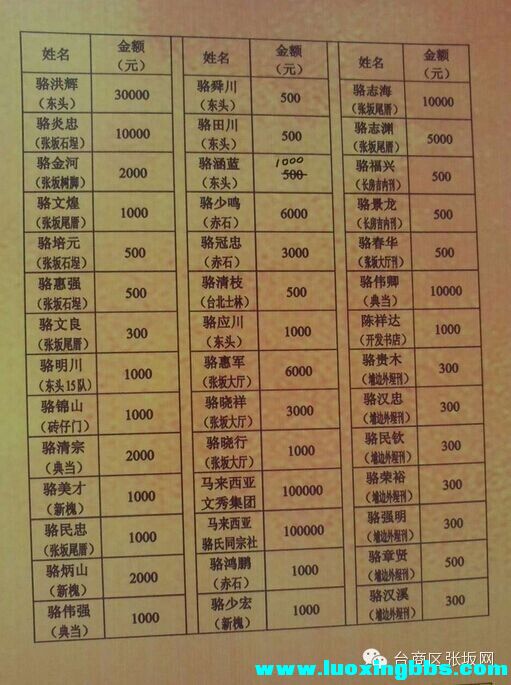 姓名 金额（元） 姓名 金额（元） 姓名 金额（元）
骆洪辉（东头） 30000 骆舜川（东头） 500 骆志海（张坂尾厝） 10000
骆炎忠（张坂石埕） 10000 骆田川（东头） 500 骆志渊（张坂尾厝） 5000
骆金河（张坂树脚） 2000 骆涵蓝（东头） 500 1000 骆福兴（长房言内刊） 500
骆文煌（张坂尾厝） 1000 骆少鸣（赤石） 6000 骆景龙（长房言内刊） 500
骆培元（张坂石埕） 500 骆冠忠（赤石） 3000 骆春华（张坂大厅刊） 500
骆惠强（张坂石埕） 500 骆清枝（台北士林） 500 骆伟卿（典当） 10000
骆文良（张坂尾厝） 300 骆应川（东头） 1000 陈祥达（开发书店） 1000
骆明川（东头15队） 1000 骆惠军（张坂大厅） 6000 骆贵木（埔边外埕刊） 300
骆锦山（砖仔门） 1000 骆晓祥（张坂大厅） 3000 骆汉忠（埔边外埕刊） 300
骆清宗（典当） 2000 骆晓行（张坂大厅） 1000 骆民钦（埔边外埕刊） 300
骆美才（新槐） 1000 马来西亚文秀集团 100000 骆荣裕（埔边外埕刊） 300
骆民忠（张坂尾厝） 1000 马来西亚骆氏同宗社 100000 骆强明（埔边外埕刊） 300
骆炳山（新槐） 2000 骆鸿鹏（赤石） 1000 骆章贤（埔边外埕刊） 500
骆伟强（典当） 1000 骆少宏（新槐） 1000 骆汉溪（埔边外埕刊） 300
台商区张坂网
www.luoxingbbs.com